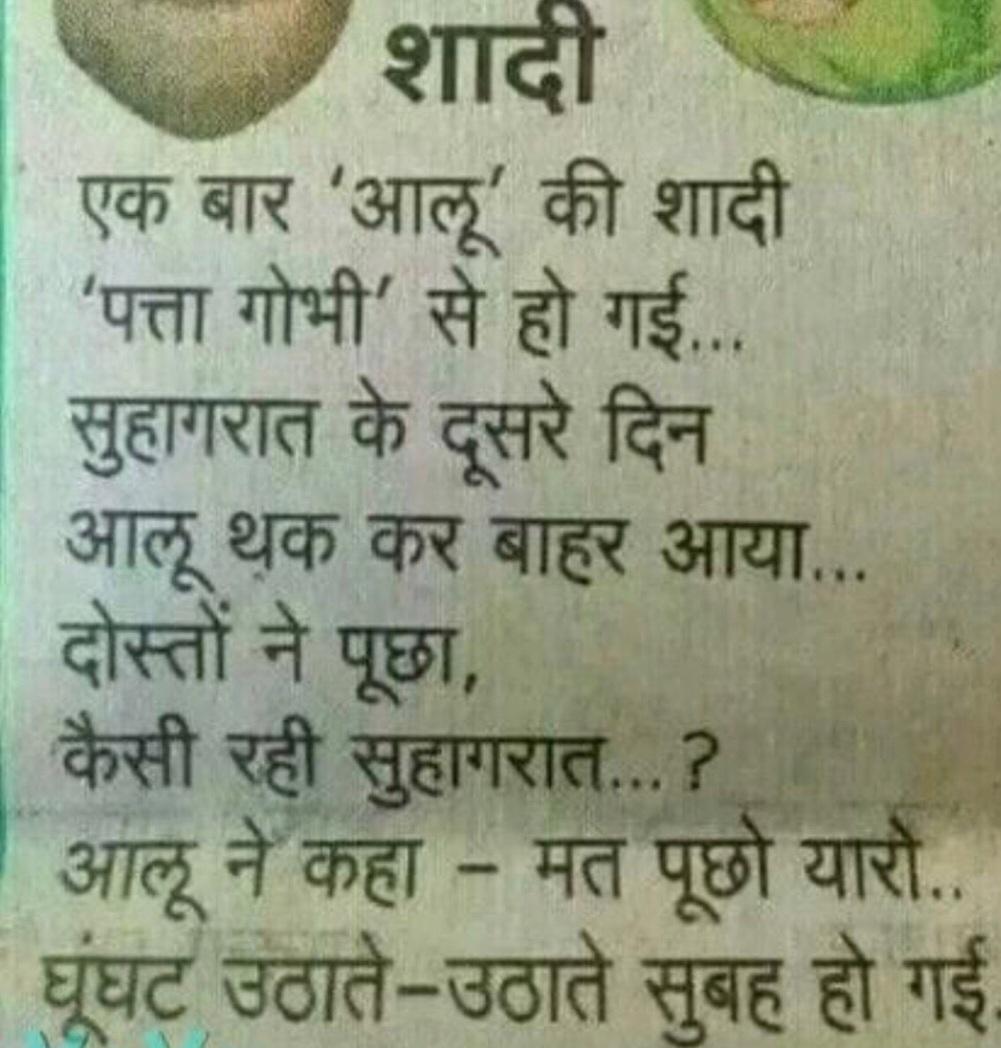 शादी
एक बार ‘आलू’ की शादी
‘पत्ता गोभी’ से हो गई...
सुहागरात के दूसरे दिन
आलू थक कर बाहर आया...
दोस्तों ने पूछा,
कैसी रही सुहागरात...?
आलू ने कहा – मत पूछो यारो..
घूंघट उठाते–उठाते सुबह हो गई.